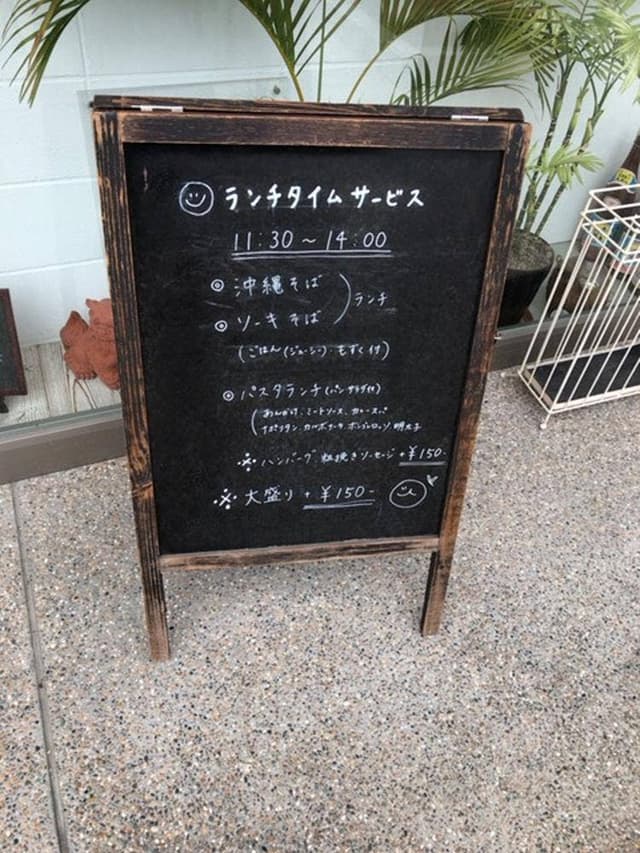 ランチタイムサービス
11:30～14:00
◎沖縄そば
◎ソーキそば
ランチ
(ごはん(ジューシー)・もずく付)
◎パスタランチ(パン・サラダ付)
(あんかけ、ミートソース、カレースパ
ナポリタン、カルボナーラ、ボンゴレロッソ、明太子
※ハンバーグ、粗挽きソーセージ+¥150-
※大盛り+¥150-